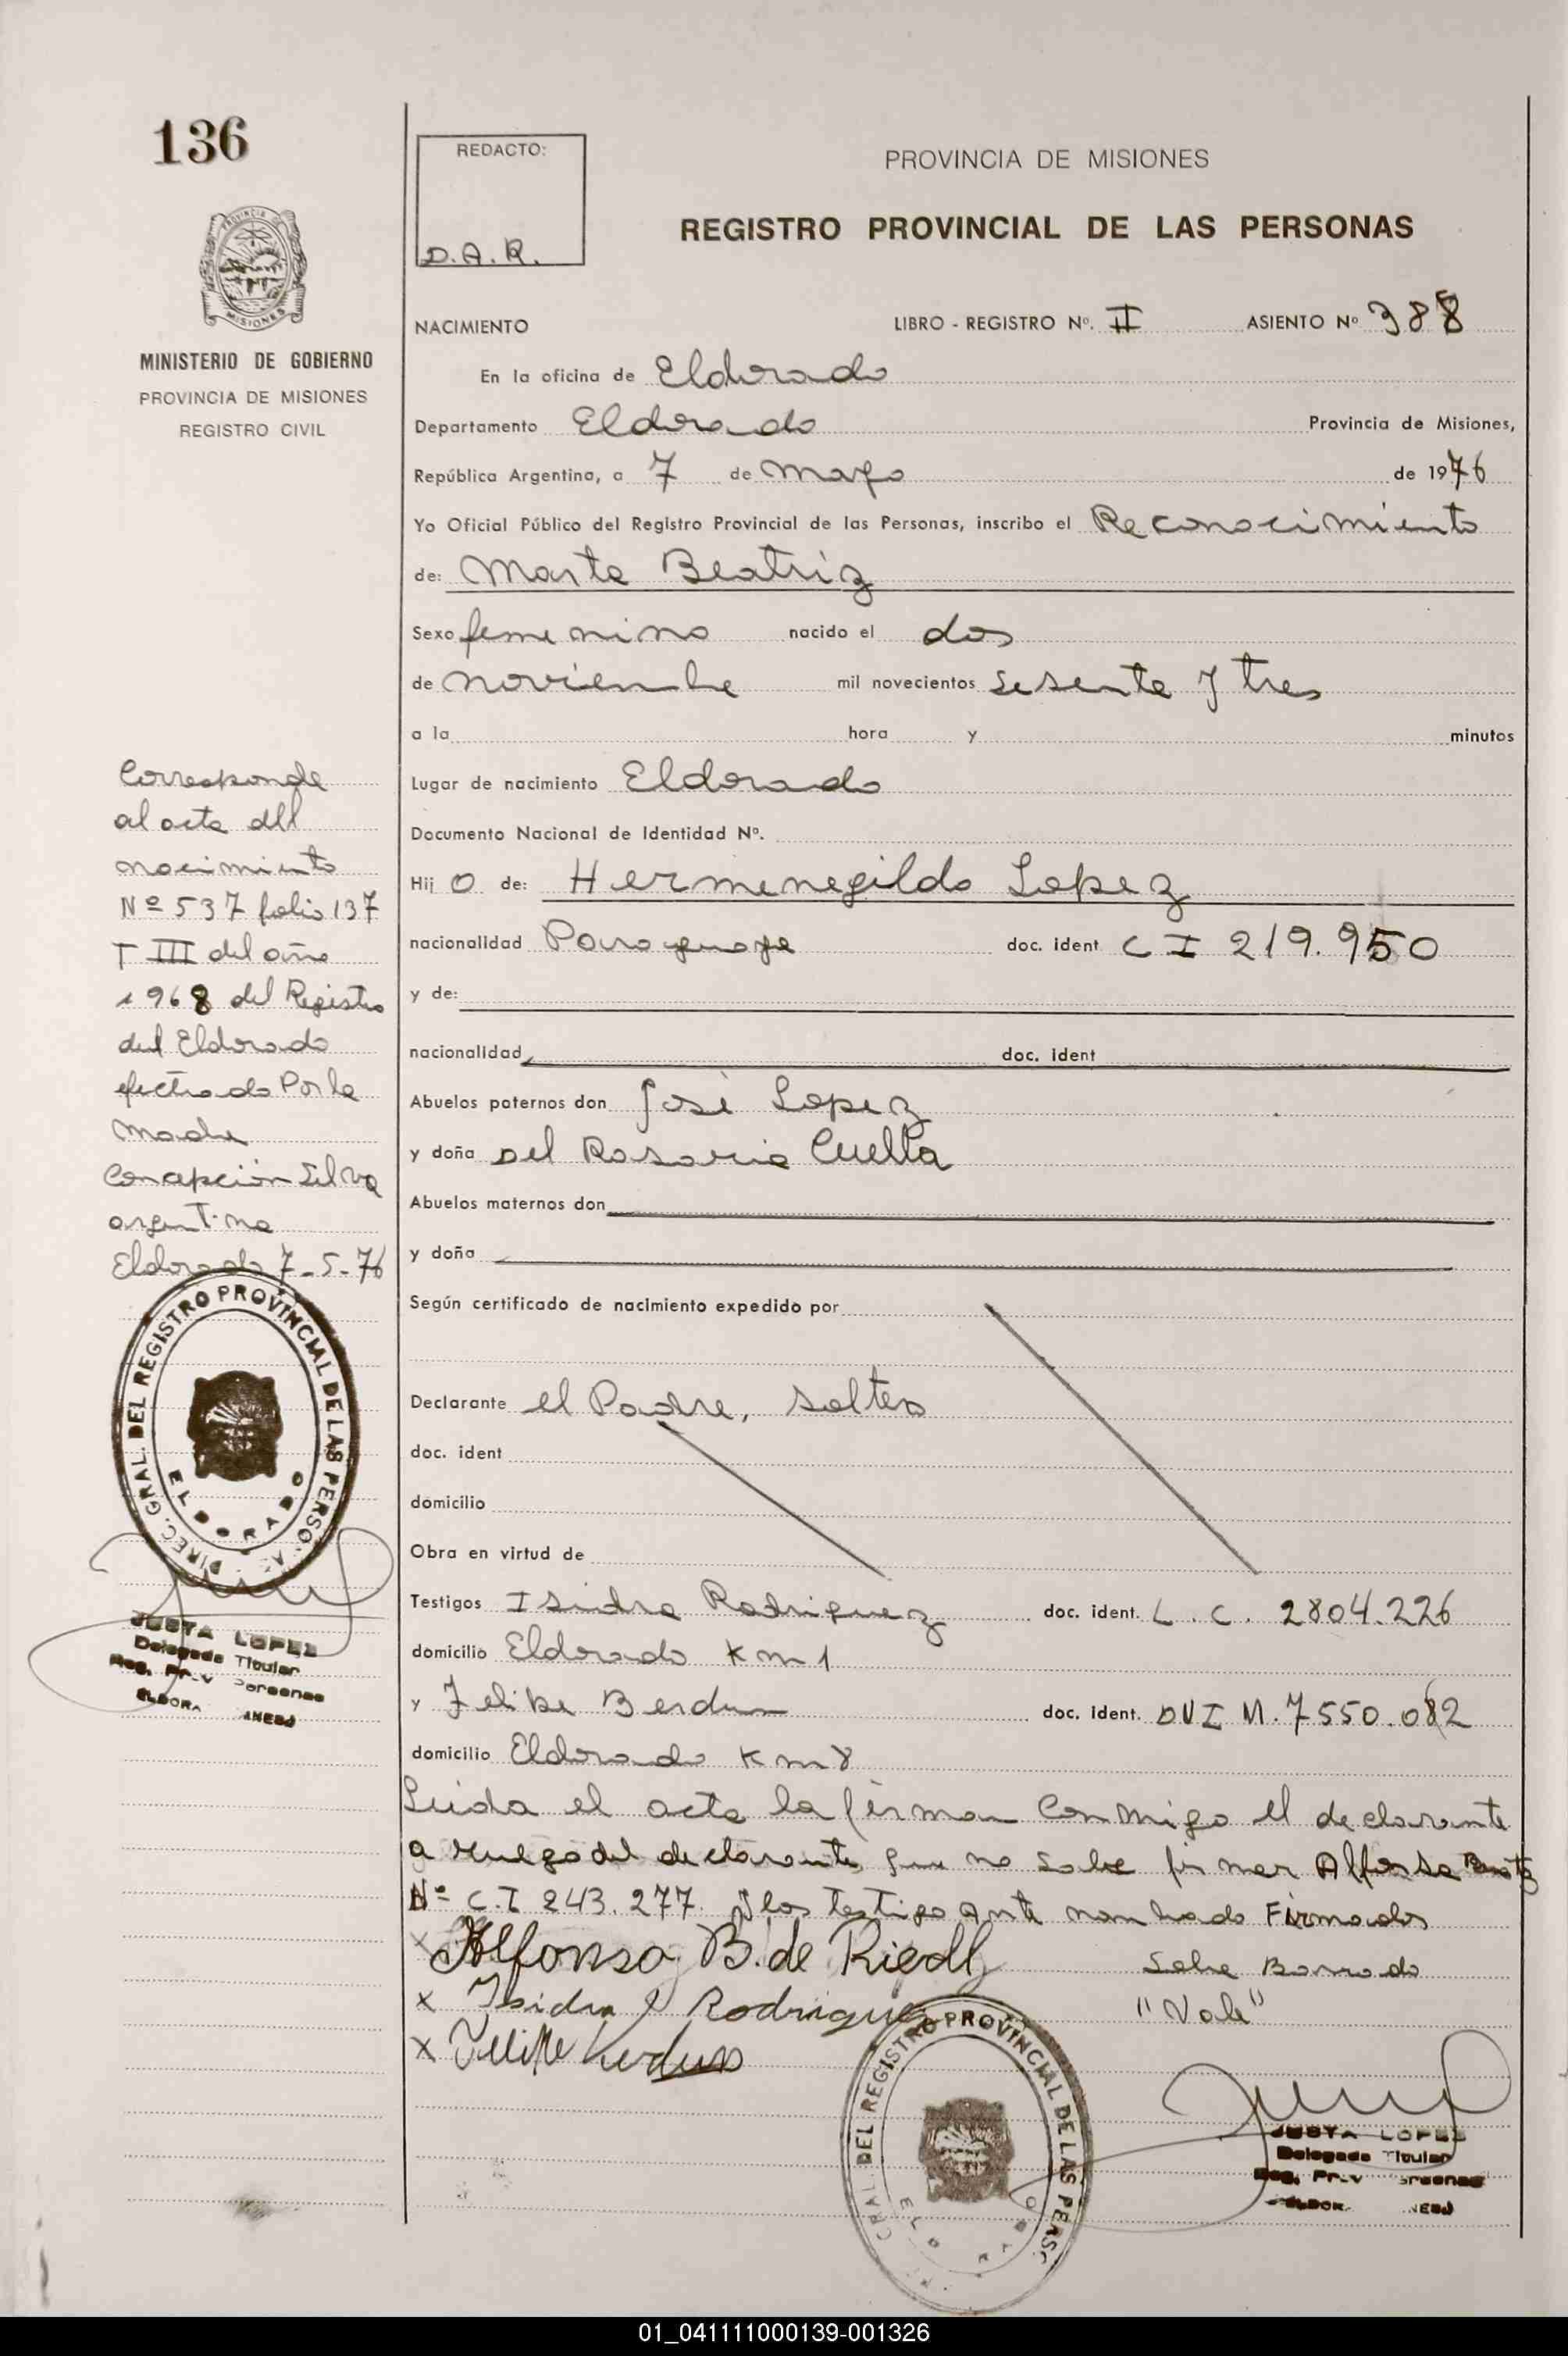 136
REDACTO:
D.A.R.
PROVINCIA DE MISIONES
REGISTRO PROVINCIAL DE LAS PERSONAS
PROVINCIA D
MISIONES
MINISTERIO DE GOBIERNO
PROVINCIA DE MISIONES
REGISTRO CIVIL
NACIMIENTO LIBRO - REGISTRO Nº. II ASIENTO Nº 388
En la oficina de Eldorado
Departamento Eldorado Provincia de Misiones,
República Argentina, a 7 de mayo de 1976
Yo Oficial Público del Registro Provincial de las Personas, inscribo el Reconocimiento
de: Marta Beatriz
Sexo femenino nacido el dos
de noviembre mil novecientos sesenta y tres
a la hora y minutos
Lugar de nacimiento Eldorado
Documento Nacional de Identidad Nº.
Hij o de: Hermenegildo Lopez
nacionalidad Paraguaya doc. ident. C I 219.950
y de:
nacionalidad doc. ident
Abuelos paternos don José Lopez
y doña Del Rosario Cuella
Abuelos maternos don
y doña
Según certificado de nacimiento expedido por
Declarante el Padre, soltero
doc. ident
domicilio
Obra en virtud de
Testigos Isidra Rodriguez doc. ident. L.C. 2804.226
domicilio Eldorado Km 1
y Felipe Berdun doc. ident. DNI M. 7550.082
domicilio Eldorado Km 8
Leida el acta la firman conmigo el declarante
a ruego del declarante que no sabe firmar Alfonsa
Nº C.I 243.277. y los testigo ante nombrado Firmados
x Alfonsa B. de Riedl Sobre Borrado
x Isidra Rodriguez "Vale"
x Felipe Berdun
Corresponde
al acta del
nacimiento
Nº 537 folio 137
T III del año
1968 del Registro
del Eldorado
efectuado Por la
Madre
Concepción Silva
argentina
Eldorado 7-5-76
DIREC. GRAL. DEL REGISTRO PROVINCIAL DE LAS PERSO
ELDORADO
JUSTA LOPEZ
Delegada Titular
Reg. Prov Personas
ELDORA
GRAL. DEL REGISTRO PROVINCIAL DE LAS PERS
JUSTA LOPEZ
Delegada Titular
Reg. Prov ersonas
ELDOR
01_041111000139-001326